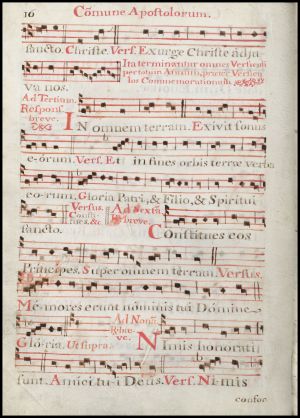 16 Cõmune Apostolorum.
sancto. Christe. Vers. Exurge Christe adju
Ita terminãtur omnes Versiculi
per totum Annum, præter Versicu
los Commemorationum.
va nos.
Ad Tertiam.
Respons.
breve.
IN omnem terram. Exivit sonus
eórum. Vers. Et in fines orbis terræ verba
eorum. Gloria Patri, & Filio, & Spiritui
Versus.
Consti-
tues, &c.
Ad Sextã,
breve.
sancto. Constitues eos
Príncipes. Super omnem terram. Versus.
Mémores erunt nóminis tui Dómine
Ad Nonã.
ve.
Glória. Ut supra. Nimis honorati
sunt. Amici tui Deus. Vers. Nimis
confor